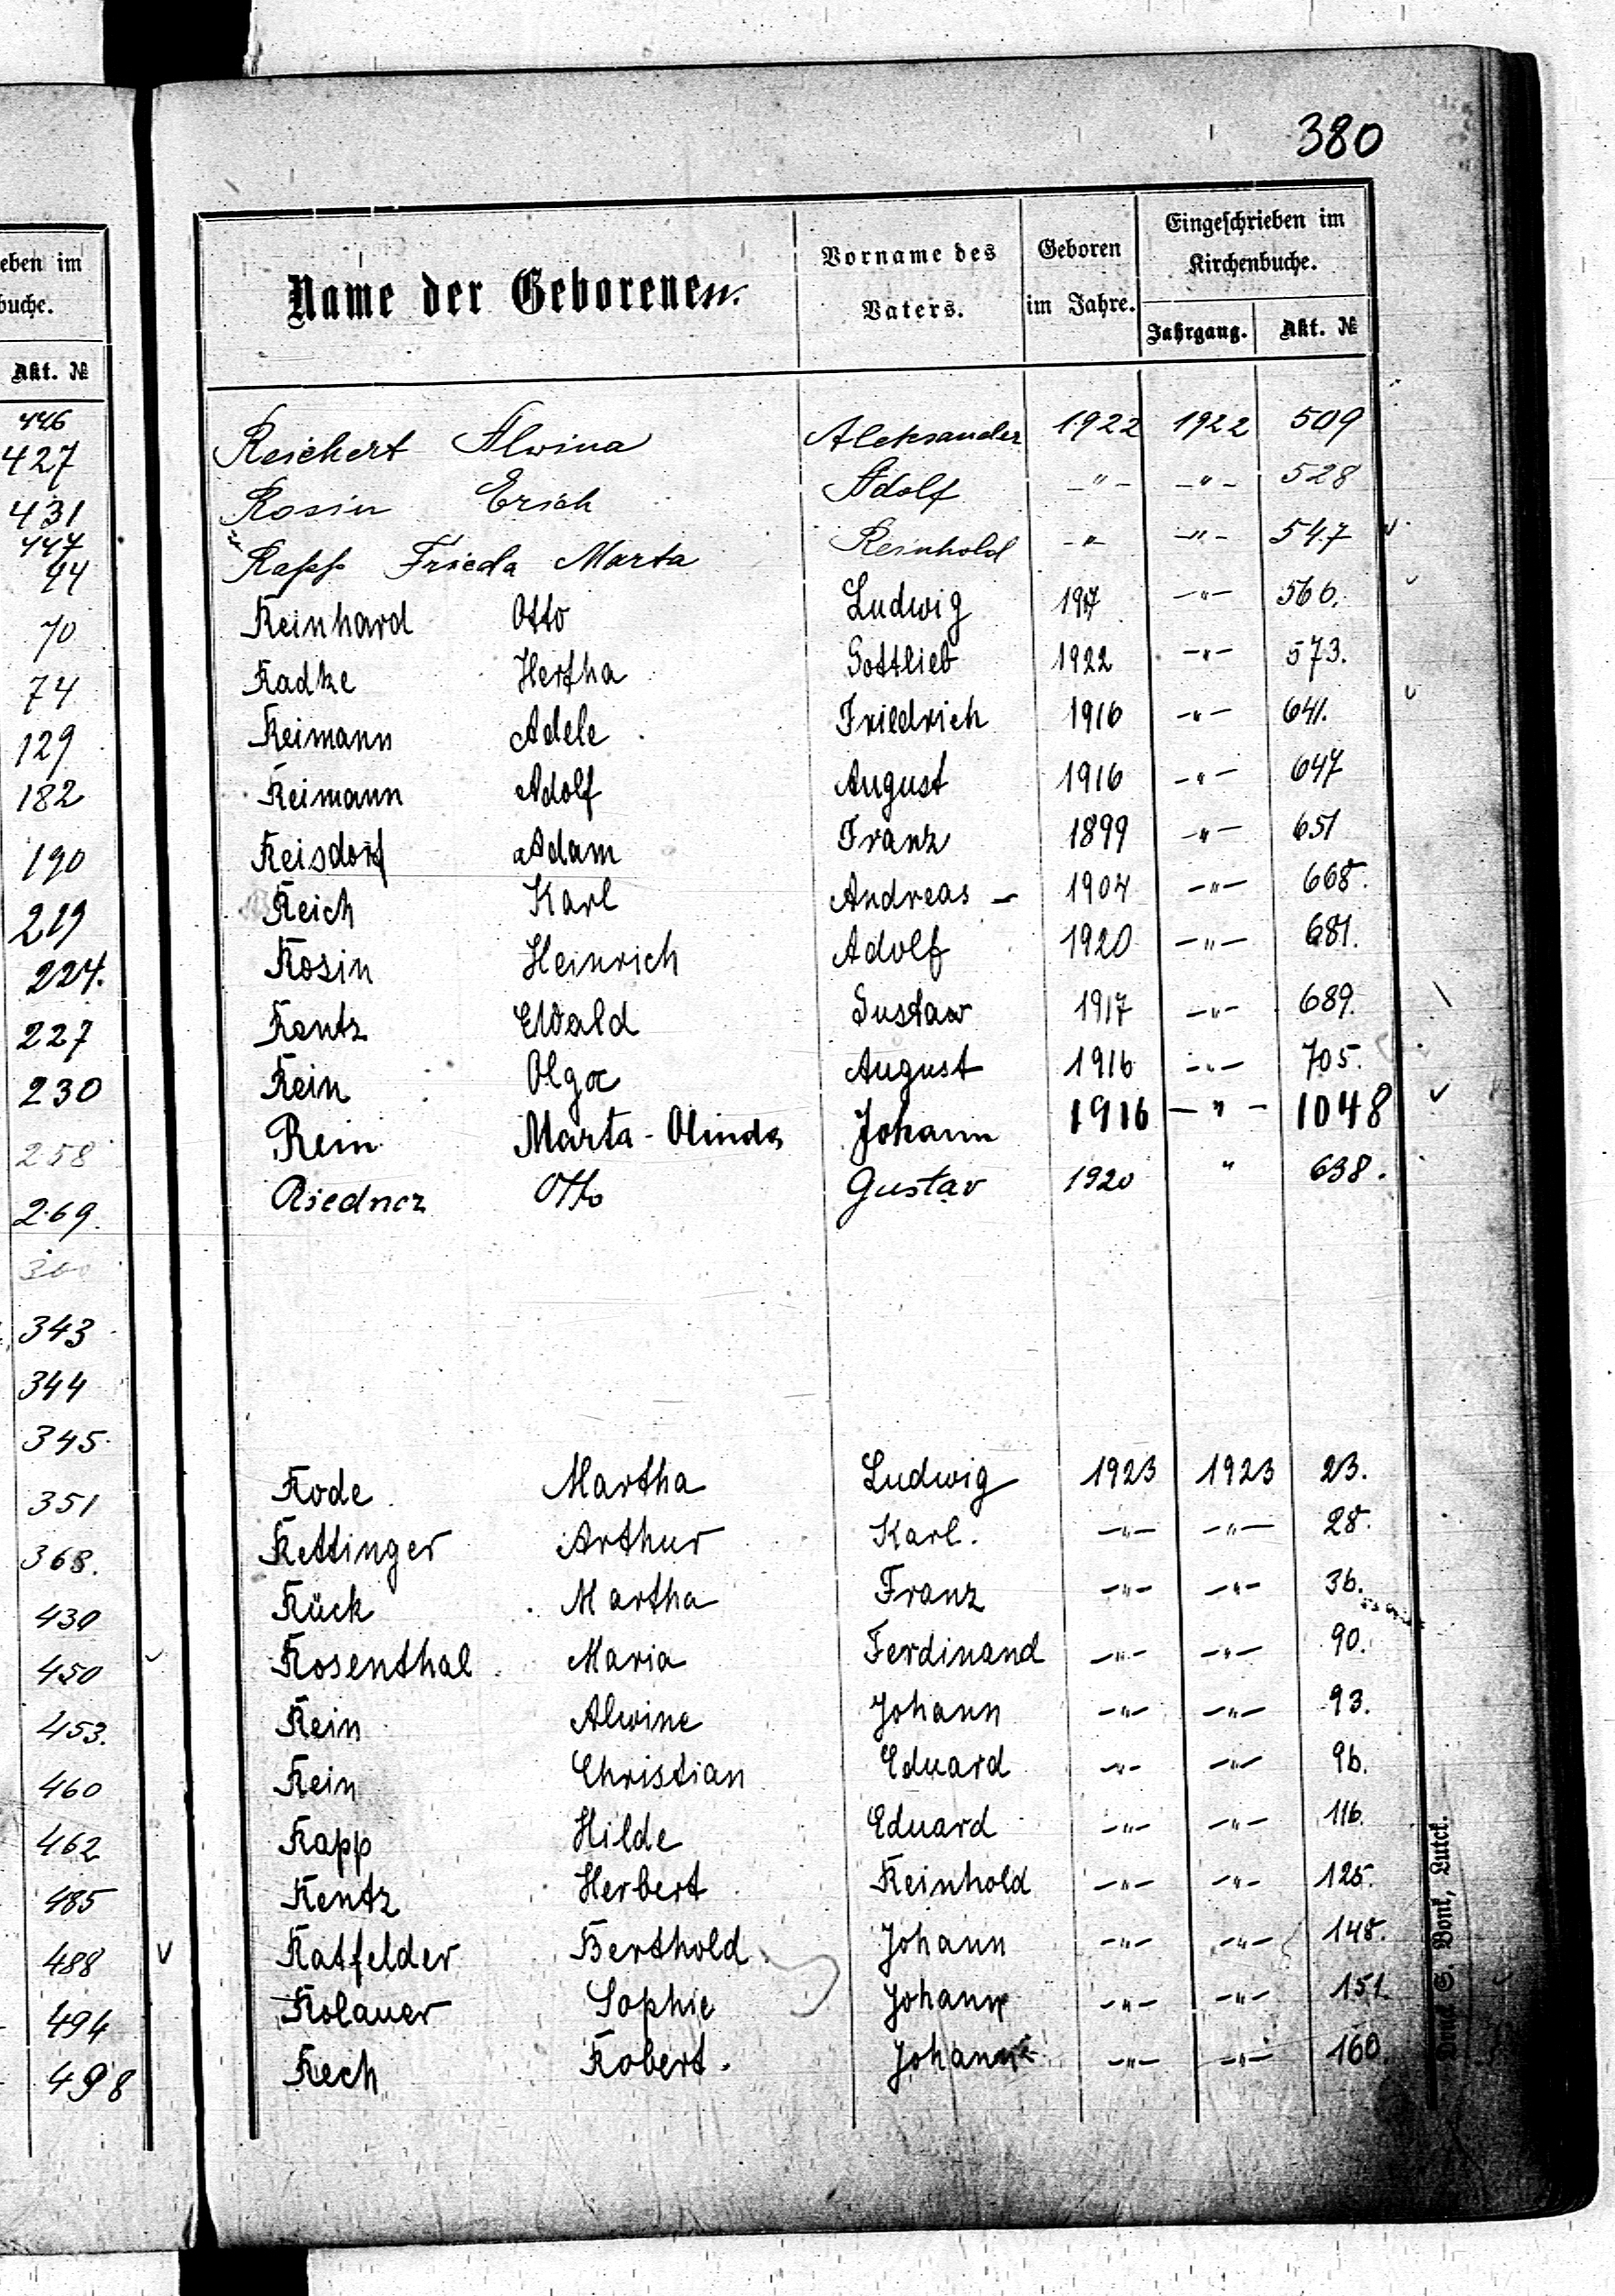 380
eben im
buche.
Akt. №
446
427
431
447
44
70
74
129
182
190
219
224.
227
230
258
269.
300
343
344
345.
351
368.
430
450
453.
460
462
485
488
494
498
Name der Geborenen.
Vorname des Vaters.
Geboren im Jahre.
Eingeschrieben im Kirchenbuche.
Jahrgang. Akt. №
Reichert Alwina Aleksander 1922 1922 509
Rosin Erich Adolf -"- -"- 528
Rapp Frieda Marta Reinhold -"- -"- 547
Reinhard Otto Ludwig 1917 -"- 560.
Radke Hertha Gottlieb 1922 -"- 573.
Reimann Adele Friedrich 1916 -"- 641.
Reimann Adolf August 1916 -"- 647
Reisdorf Adam Franz 1899 -"- 651
Reich Karl Andreas - 1904 -"- 668.
Rosin Heinrich Adolf 1920 -"- 681.
Rentz Ewald Gustaw 1917 -"- 689.
Rein Olga August 1916 -"- 705.
Rein Marta-Olinda Johann 1916 -"- 1048
Riedncz Otto Gustav 1920 " 638.
Rode Martha Ludwig 1923 1923 23.
Rettinger Arthur Karl. -"- -"- 28.
Rück Martha Franz -"- -"- 36.
Rosenthal Maria Ferdinand -"- -"- 90.
Rein Alwine Johann -"- -"- 93.
Rein Christian Eduard -"- -"- 96.
Rapp Hilde Eduard -"- -"- 116.
Rentz Herbert Reinhold -"- -"- 125.
Ratfelder Berthold Johann -"- -"- 148.
Rolauer Sophie Johann -"- -"- 151.
Rech Robert. Johann -"- -"- 160.
Druck S. Bonk, Lutck.